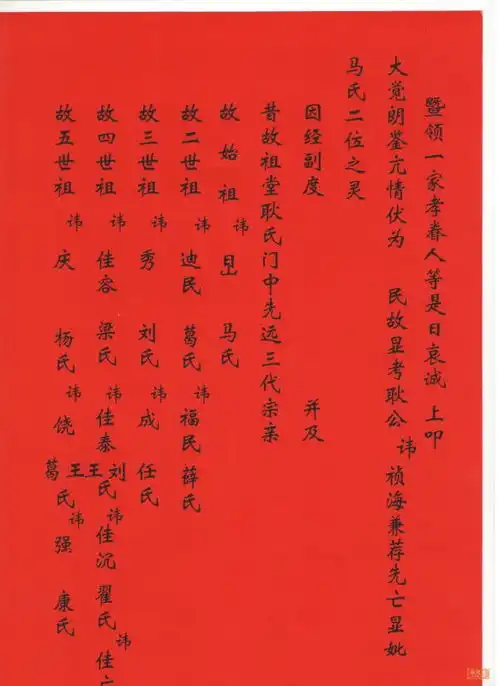 暨领一家孝眷人等是日哀诚 上叩
大觉明鉴亢情伏为 民故显考耿公讳祯海兼荐先亡显妣
马氏二位之灵
因经副度 并及
昔故祖堂耿氏门中先远三代宗亲
故始祖讳 马氏
故二世祖讳迪民葛氏讳福民薛氏
故三世祖讳秀刘氏讳成任氏
故四世祖讳佳容梁氏讳佳泰刘王王氏讳佳沉翟氏讳佳
故五世祖讳庆杨氏讳饶葛氏讳强康氏